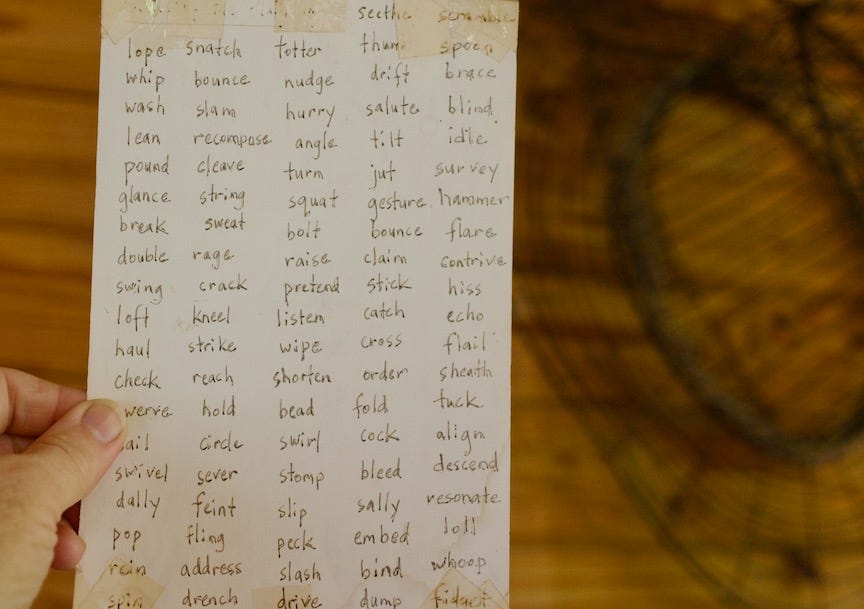 seethe scramble
lope snatch totter spoon
whip bounce nudge drift brace
wash slam hurry salute blind
lean recompose angle tilt idle
pound cleave turn jut survey
glance string squat gesture hammer
break sweat bolt bounce flare
double rage raise claim contrive
swing crack pretend stick hiss
loft kneel listen catch echo
haul strike wipe cross flail
check reach shorten order sheath
werve hold bead fold tuck
ail circle swirl cock align
swivel sever stomp bleed descend
dally feint slip sally resonate
pop fling peck embed loll
address slash bind whoop
spin drench drive dump fidget